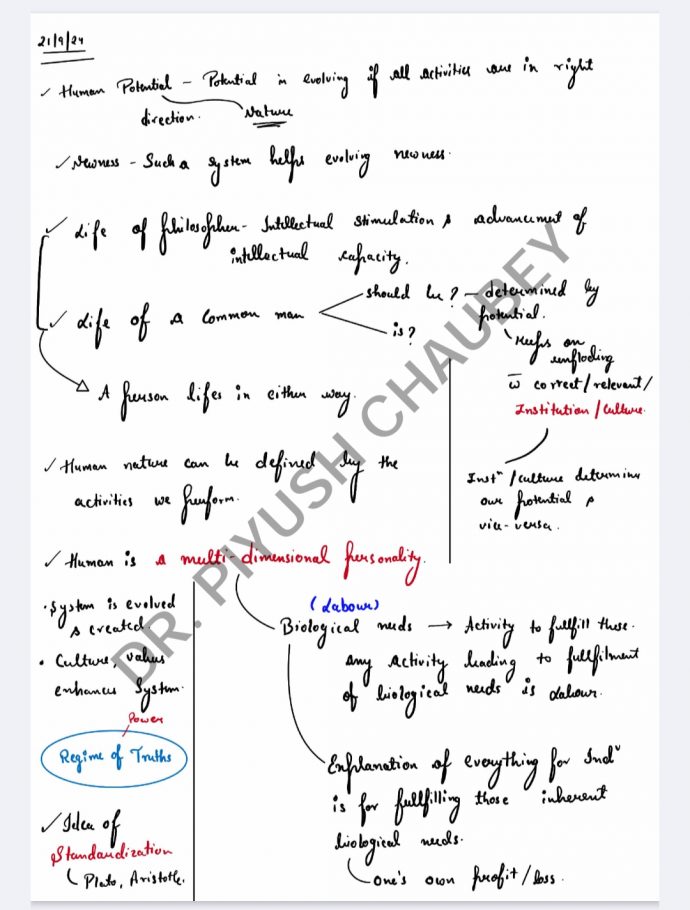 21/9/24
✓ Human Potential - Potential in evolving if all activities are in right
direction. Nature
✓ Newness - Such a system helps evolving newness.
✓ Life of philosopher - Intellectual stimulation & advancement of
intellectual capacity.
✓ Life of a common man
should be? - determined by
potential.
is?
Keeps on
exploding
w̄ correct/relevant/
Institution/Culture.
△ A person lifes in either way.
✓ Human nature can be defined by the
activities we perform.
Instⁿ/culture determine
our potential &
vice-versa.
✓ Human is a multi-dimensional personality.
• System is evolved
& created.
• Culture, values
enhances System.
Power
Regime of Truths
✓ Idea of
Standardization
Plato, Aristotle.
(Labour)
Biological needs → Activity to fulfill these.
Any Activity leading to fullfilment
of biological needs is Labour.
Explanation of everything for Indᵛ
is for fullfilling those inherent
biological needs.
one's own profit/loss.
DR. PIYUSH CHAUBEY